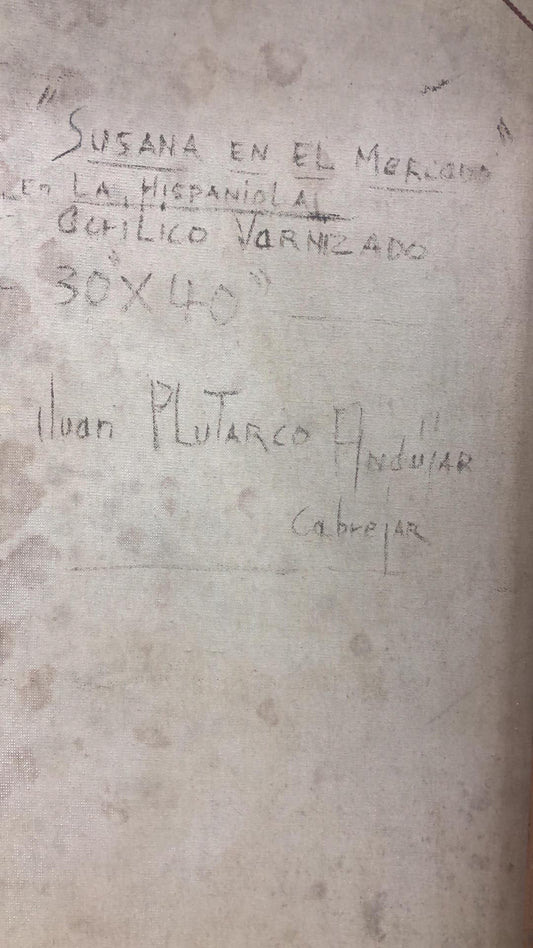 "SUSANA EN EL MERCADO"
En LA HISPANIOLA
ACRILICO VARNIZADO
30" X 40"
Juan PLUTARCO ANDUJAR
Cabrejar